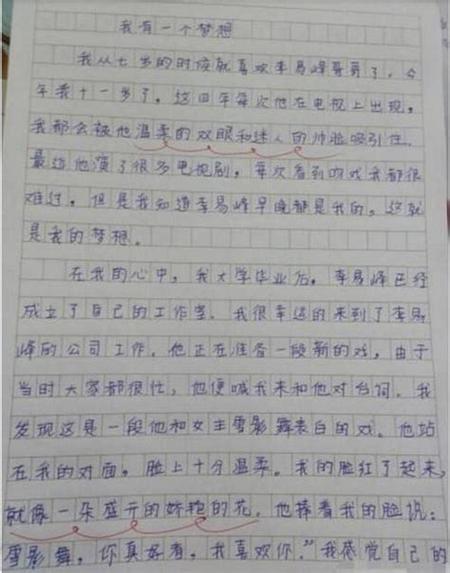 我有一个梦想
我从七岁的时候就喜欢李易峰哥哥了，今
年我十一岁了，这四年每次他在电视上出现，
我都会被他温柔的双眼和迷人的帅脸吸引住。
最近他演了很多电视剧，每次看到吻戏我都很
难过，但是我知道李易峰早晚都是我的，这就
是我的梦想。
在我的心中，我大学毕业后，李易峰已经
成立了自己的工作室，我很幸运的来到了李易
峰的公司工作，他正在准备一段新的戏，由于
当时大家都很忙，他便喊我来和他对台词。我
发现这是一段他和女主雪影舞表白的戏。他站
在我的对面，脸上十分温柔。我的脸红了起来，
就像一朵盛开的娇艳的花。他捧着我的脸说：
雪影舞，你真好看，我喜欢你。”我感觉自己的